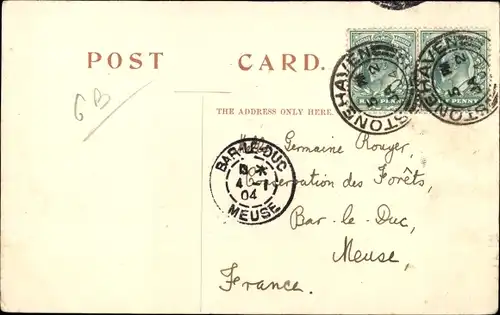 POST CARD.
THE ADDRESS ONLY HERE.
GB
STONEHAVEN
STONEHAVEN
HALFPENNY
BAR-LE-DUC
4 - 1
04
MEUSE
Germaine Rouyer,
Conservation des Forêts,
Bar-le-Duc,
Meuse,
France.